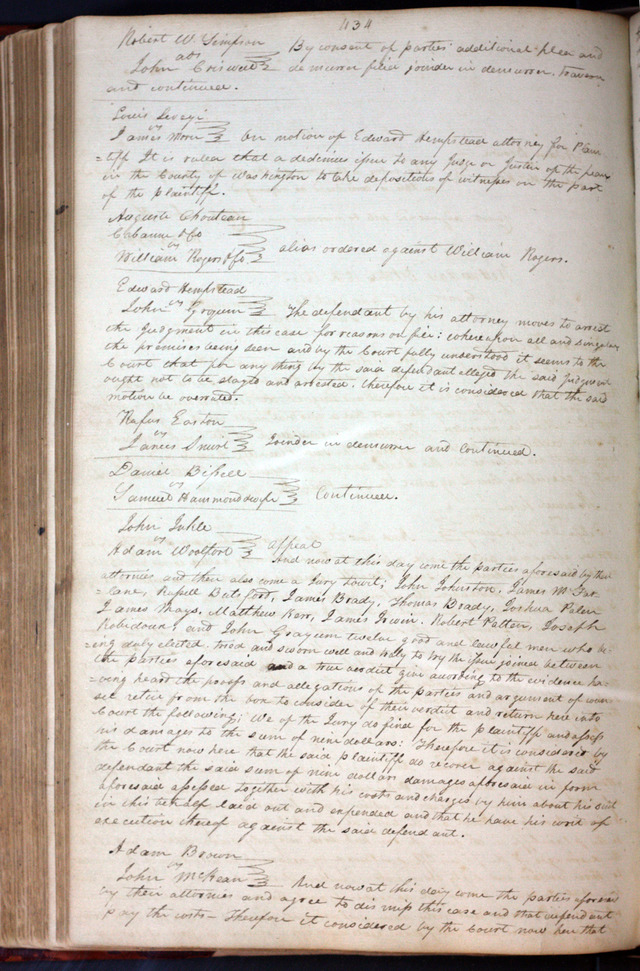 434
Robert W Simpson
ads
John Criswell } By consent of parties additional plea and
demurrer filed joinder in demurrer, traverse
and continued.
Louis
vs
James Morr } On motion of Edward Hempstead attorney for Plain
=tiff It is ruled that a dedimus issue to any Judge or Justice of the peace
in the County of Washington to take depositions of witnesses on the part
of the plaintiff.
Auguste Chouteau
Cabanne & Co
vs
William Rogers & Co } alias ordered against William Rogers.
Edward Hempstead
vs
John } The defendant by his attorney moves to arrest
the Judgment in this case for reasons on file: whereupon all and singular
the premises being seen and by the Court fully understood it seems to the
Court that for any thing by the said defendant alleged the said Judgment
ought not to be stayed and arrested. Therefore it is considered that the said
motion be overruled.
Rufus Easton
vs
James Smirl } Joinder in demurrer and Continued.
Daniel Bissell
vs
Samuel Hammond & wife } Continued.
John Juhle
vs
Adam Woolfort } appeal
And now at this day come the parties aforesaid by their
attornies and then also come a Jury towit; John Johnston, James McFar
=lane, Russell Botsford, James Brady, Thomas Brady, Joshua Palen
James Mays, Matthew Kerr, James Irwin, Robert Patten, Joseph
Robidoux and John Grayum twelve good and lawful men who be
=ing duly elected, tried and sworn well and truly to try the issue joined between
the parties aforesaid and a true verdict give according to the evidence ha=
=ving heard the proofs and allegations of the parties and argument of coun
sel retire from the box to consider of their verdict and return here into
Court the following; We of the Jury do find for the plaintiff and assess
his damages to the sum of nine dollars: Therefore it is considered by
the Court now here that the said plaintiff do recover against the said
defendant the said sum of nine dollars damages aforesaid in form
aforesaid assessed together with his costs and charges by him about his suit
in this behalf laid out and expended and that he have his writ of
execution thereof against the said defendant.
Adam Brown
vs
John McKean } And now at this day come the parties aforesaid
by their attornies and agree to dismiss this case and that defendant
pay the costs - Therefore it considered by the Court now here that